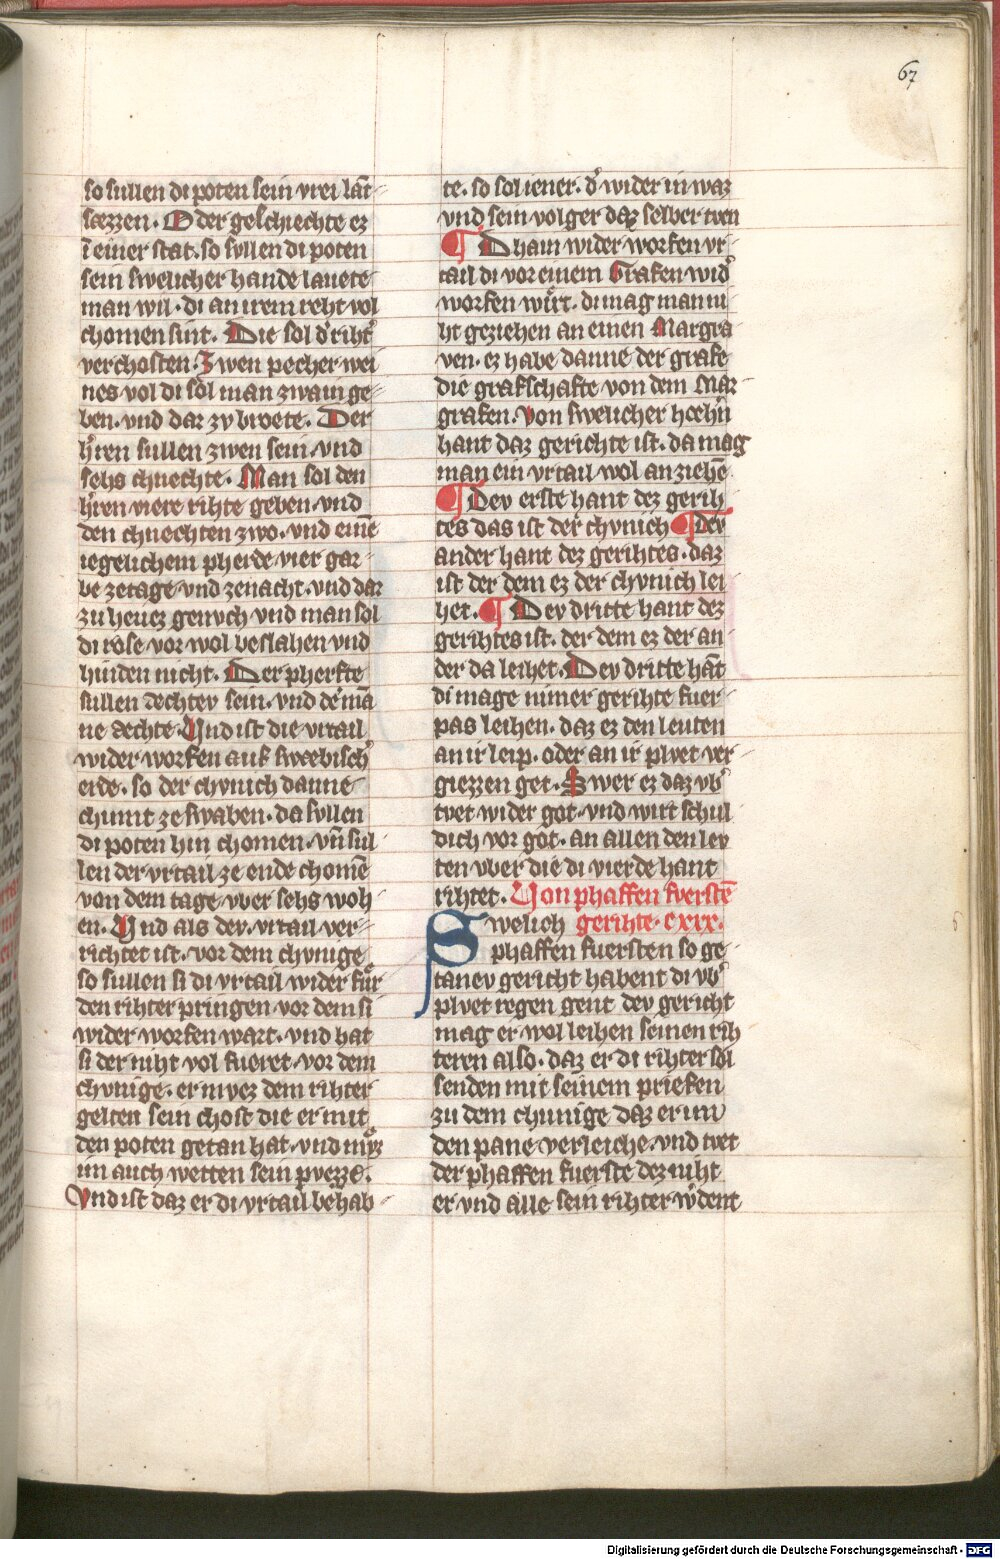 67
so sullen di poten sein vrei lāt-
sæzzen. Oder geschiechte ez
ī einer stat. so svllen di poten
sein swelicher hande laůete
man wil. di an irem reht vol
chomen sint. Die sol d᷑ riht᷑
verchosten. Zwen pecher wei
nes vol di sol man zwain ge-
ben. vnd dar zv broete. Der
h᷑ren sullen zwen sein. vnd
sehs chnechte. Man sol den
h᷑ren viere rihte geben. vnd
den chnechten zwo. vnd einē
iegelichem pherde vier gar-
be ze tage vnd ze nacht. vnd dar
zu hevez genvch vnd man sol
di rose vor wol beslahen vnd
hinden nicht. Der pherfte
sullen æchtev sein. vnd d᷑ mā
ne æchte. Vnd ist die vrtail
wider worfen auf swebisch᷑
erde. so der chvnich danne
chumt ze swaben. da svllen
di poten hin chomen. vn̄ sul
len der vrtail ze ende chomē
von dem tage vber sehs woh
en. Vnd als dev vrtail ver-
richtet ist. vor dem chvnige
so sullen si di vrtail wider fůr
den rihter pringen. vor dem si
wider worfen wart. vnd hat
si der niht vol fueret. vor dem
chvnige. er mvez dem rihter
gelten sein chost die er mit
den poten getan hat. vnd můz
im auch wetten sein pvezze.
Vnd ist daz er di vrtail behab-
te. so sol iener. d᷑ wider in waz
vnd sein volger daz selber tven
¶ Dhain wider worfen vr-
tail di vor einem Grafen wid᷑
worfen wůrt. di mag man ni
ht geziehen an einen Margra
ven. ez habe danne der grafe
die grafschafte von dem Mar-
grafen. Von swelicher hoehn̄
hant daz gerichte ist. da mag
man ein vrtail wol an ziehē
¶ Dev erste hant dez gerih
tes das ist der chvnich ¶ Dev
ander hant dez gerihtes. daz
ist der dem ez der chvnich lei
het. ¶ Dev dritte hant dez
gerihtes ist. der dem ez der an-
der da leihet. Dev dritte hāt
di mage nimer gerihte fuer-
pas leihen. daz ez den leuten
an ir leip. oder an ir plvet ver-
giezzen get. Swer ez daz vb᷑
tvet wider got. vnd wirt schul
dich vor got. an allen den lev
ten vber die di vierde hant
rihtet. Von phaffen fverstē
Swelich gerihte. cxxx.
phaffen fuersten so ge
tanev gericht habent di vb᷑
plvet regen gent dev gericht
mag er wol leihen seinen rih
teren also. daz er di rihter sol
senden mit seinem priefen
zu dem chunige daz er im
den pane verleiche. vnd tvet
der phaffen fuerste dez niht
er vnd alle sein rihter w᷑dent
Digitalisierung gefördert durch die Deutsche Forschungsgemeinschaft - DFG